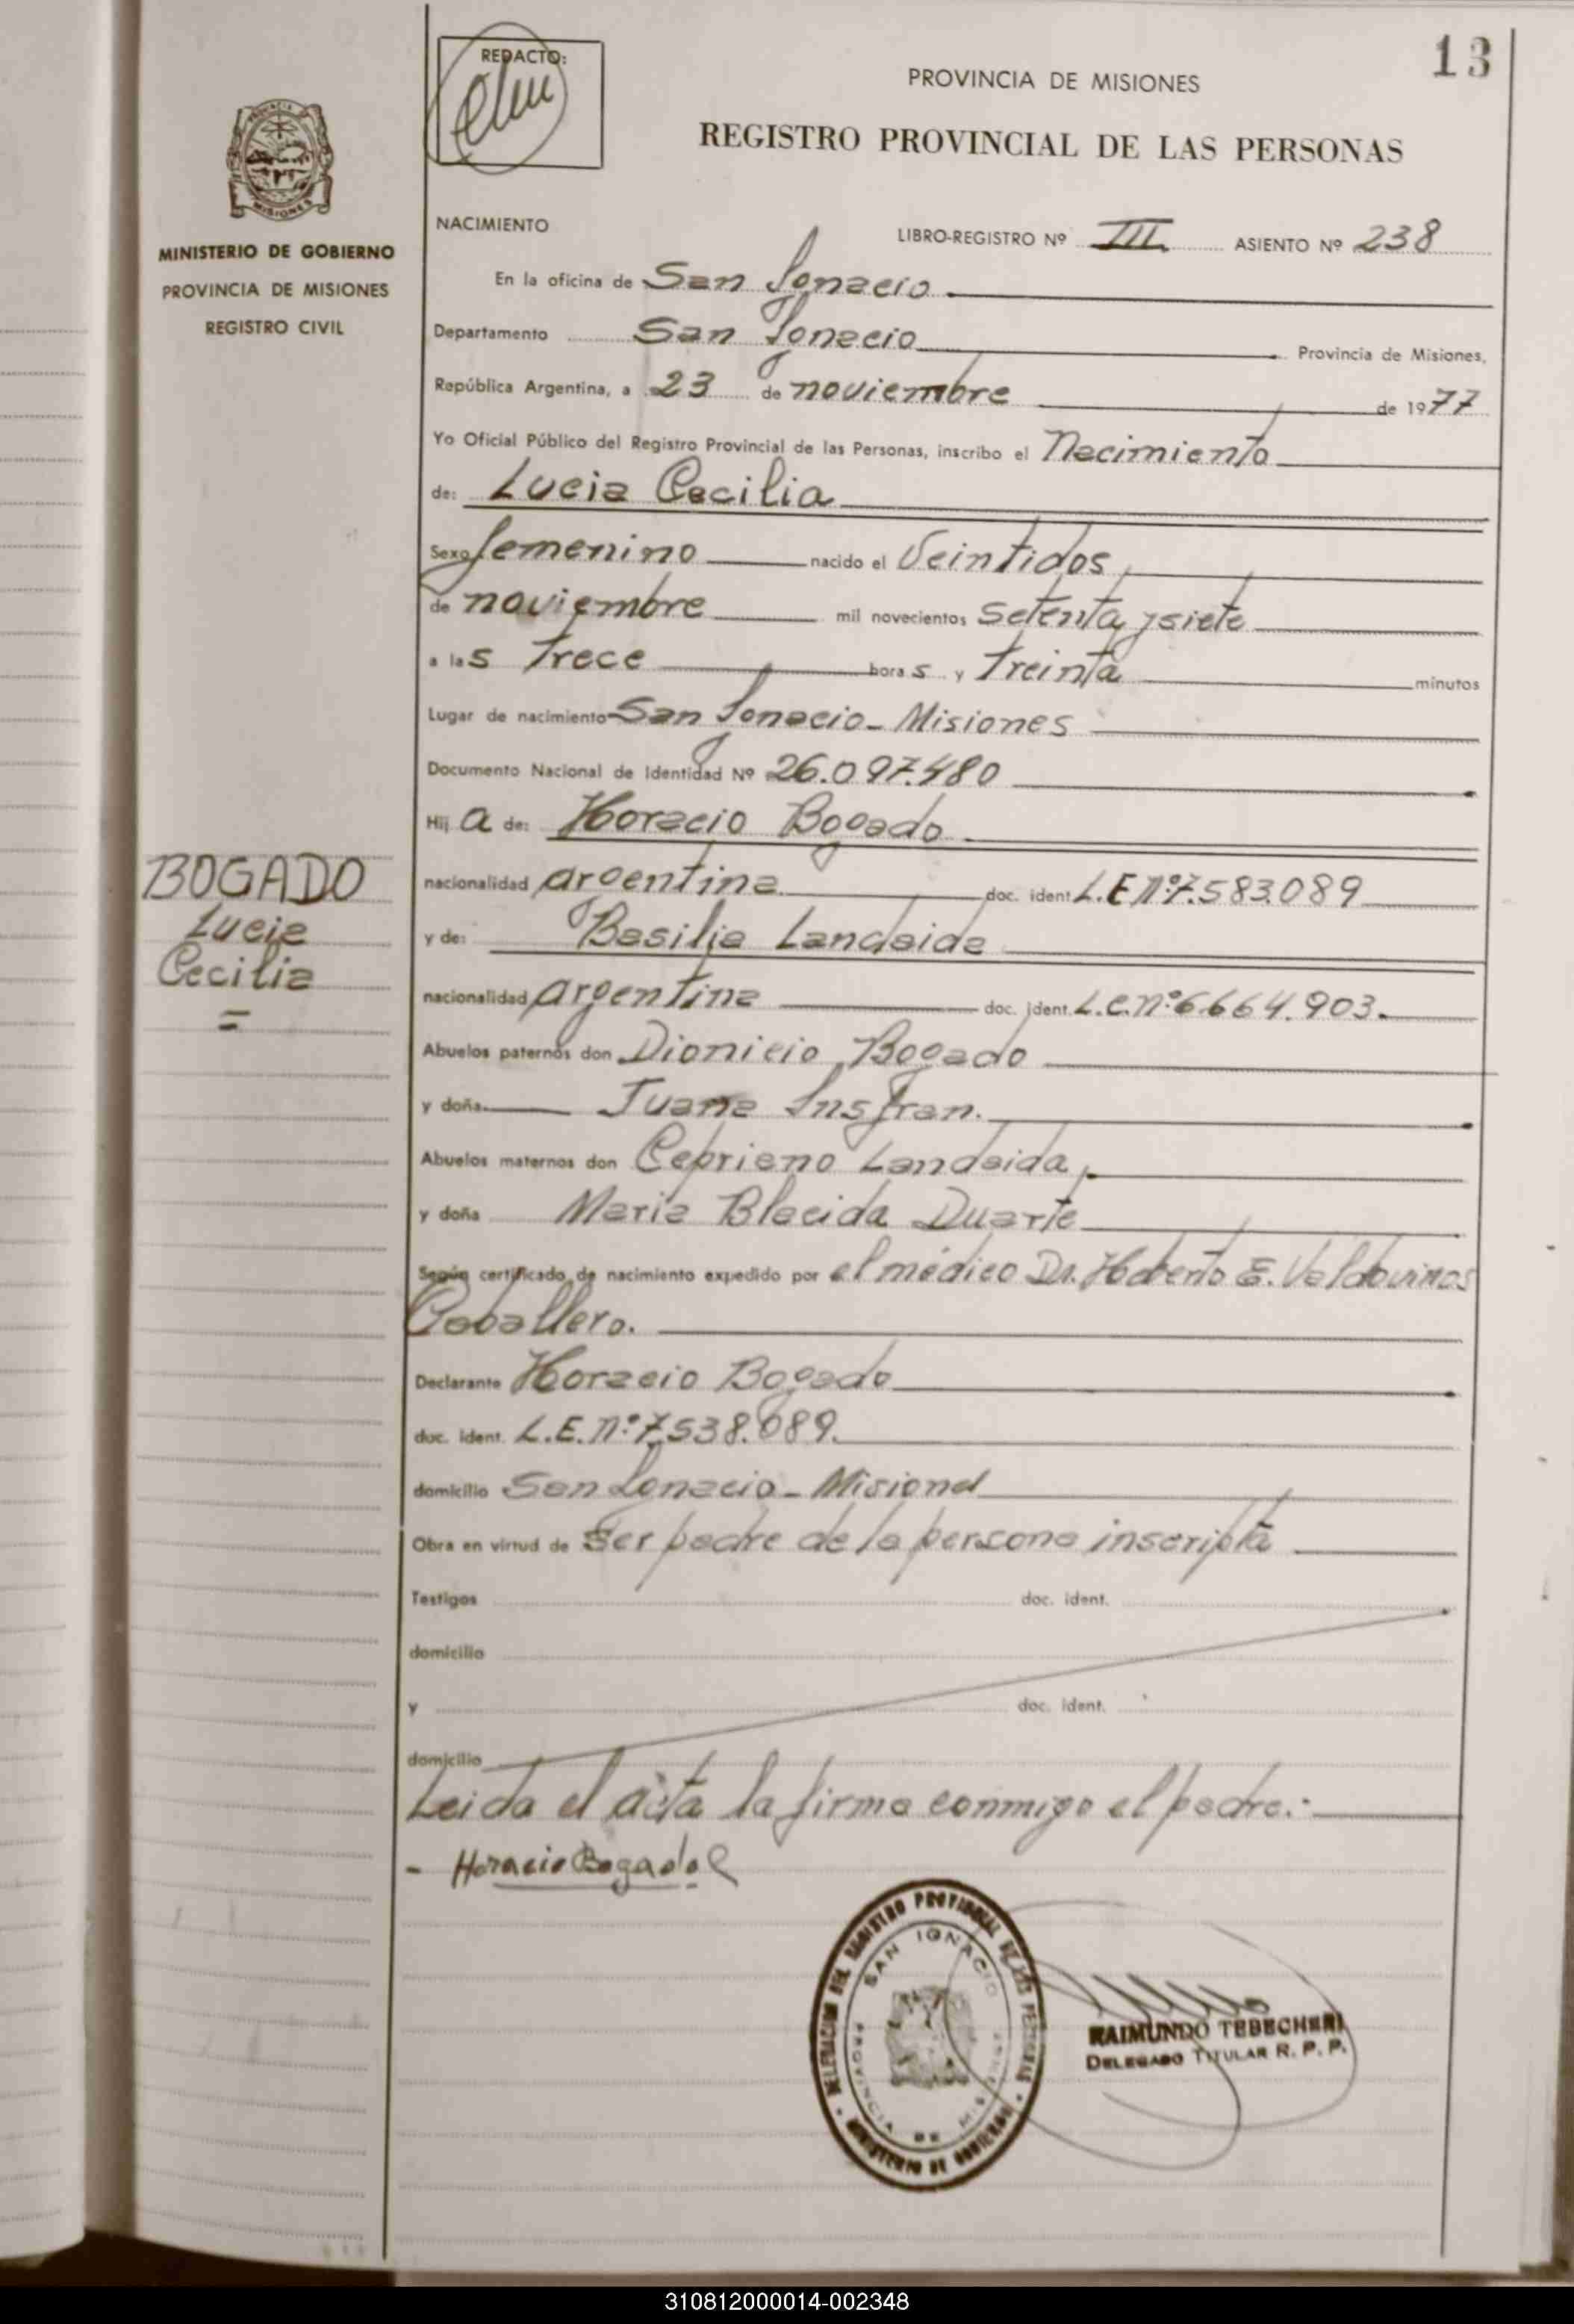 13
REDACTO:
PROVINCIA DE MISIONES
REGISTRO PROVINCIAL DE LAS PERSONAS
MISIONES
MINISTERIO DE GOBIERNO
PROVINCIA DE MISIONES
REGISTRO CIVIL
NACIMIENTO
LIBRO-REGISTRO Nº III ASIENTO Nº 238
En la oficina de San Ignacio
Departamento San Ignacio Provincia de Misiones,
República Argentina, a 23 de noviembre de 1977
Yo Oficial Público del Registro Provincial de las Personas, inscribo el Nacimiento
de: Lucia Cecilia
Sexo femenino nacido el Veintidos
de noviembre mil novecientos setenta y siete
a las trece horas y treinta minutos
Lugar de nacimiento San Ignacio - Misiones
Documento Nacional de Identidad Nº 26.097.480
Hija de: Horacio Bogado
nacionalidad argentina doc. ident. L.E nº 7.583.089
y de: Basilia Landaida
nacionalidad argentina doc. ident. L.C. nº 6.664.903.
Abuelos paternos don Dionicio Bogado
y doña Juana Insfran.
Abuelos maternos don Ceprieno Landaida,
y doña Maria Blacida Duarte
Según certificado de nacimiento expedido por el médico Dr. Hoberto E. Valdovinos
Caballero.
Declarante Horacio Bogado
doc. ident. L.E. nº 7.538.089.
domicilio San Ignacio - Misiones
Obra en virtud de ser padre de la persona inscripta
Testigos doc. ident.
domicilio
y doc. ident.
domicilio
Leida el acta la firma conmigo el padre.-
- Horacio Bogado
BOGADO
Lucia
Cecilia
=
DELEGACION DEL REGISTRO PROVINCIAL DE LAS PERSONAS
SAN IGNACIO
PROVINCIA DE MISIONES
MINISTERIO DE GOBIERNO
RAIMUNDO TEBECHERI
DELEGADO TITULAR R. P. P.
310812000014-002348